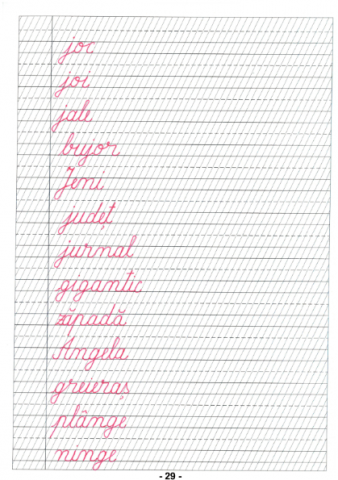 joc
joi
jale
bujor
Jeni
județ
jurnal
gigantic
zăpadă
Angela
greieraș
plânge
ninge
- 29 -